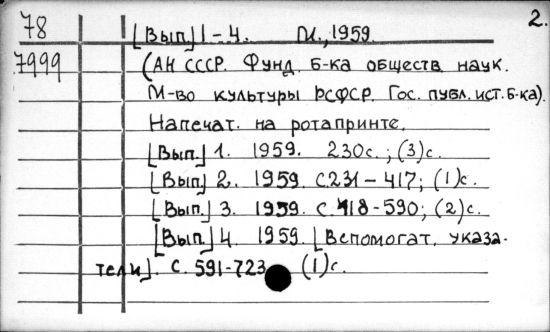 2.
78 [Вып.] 1-4. М., 1959.
7999 (АН СССР. Фунд. б-ка обществ. наук.
М-во культуры РСФСР. Гос. публ. ист. б-ка).
Напечат. на ротапринте.
[Вып.] 1. 1959. 230с.; (3)с.
[Вып.] 2. 1959. С.231-417; (1)с.
[Вып.] 3. 1959. С.418-590; (2)с.
[Вып.] 4. 1959. [Вспомогат. указа-
тели]. С. 591-723 (1)с.